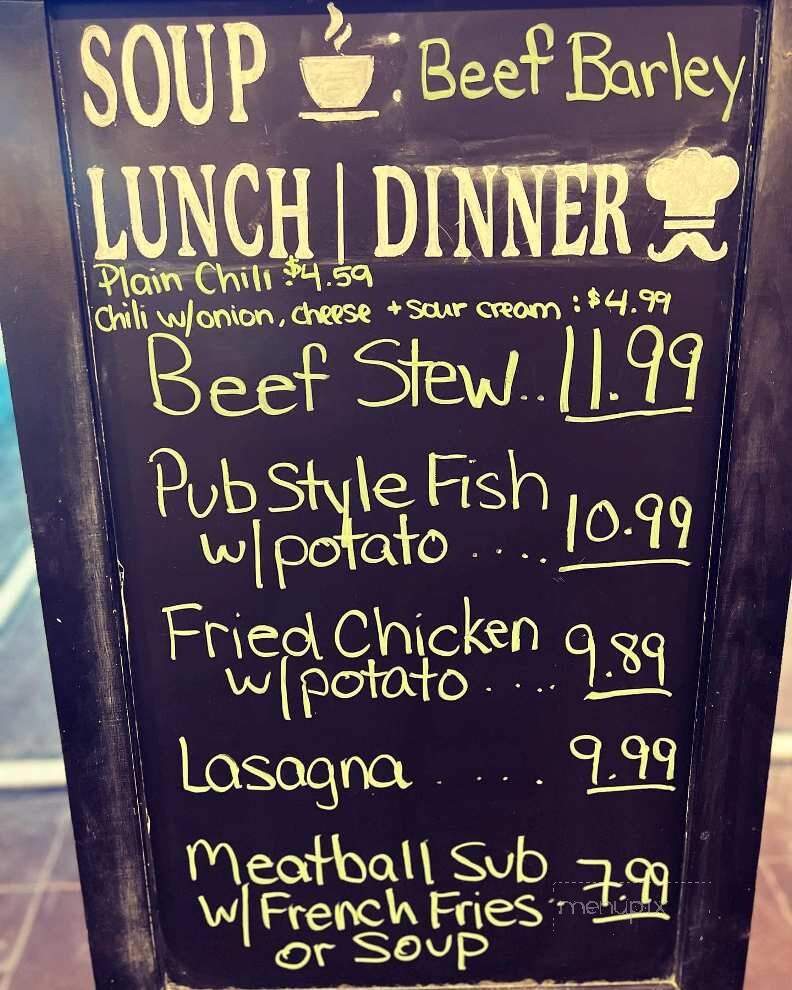 SOUP . Beef Barley
LUNCH | DINNER
Plain Chili : $4.59
Chili w/onion, cheese + sour cream : $4.99
Beef Stew.. 11.99
Pub Style Fish
w/potato .... 10.99
Fried Chicken
w/potato .... 9.89
Lasagna .... 9.99
Meatball Sub
w/French Fries .. 7.99
or Soup
menupix